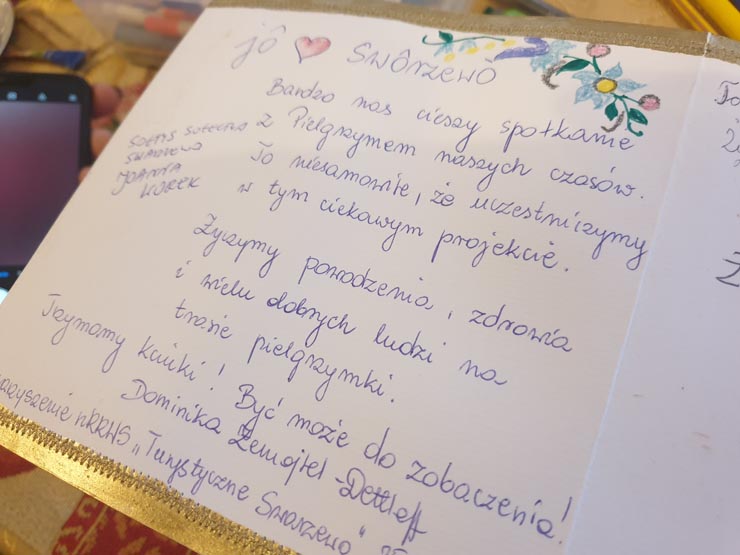 jô ♥ Swôrzewò
Bardzo nas cieszy spotkanie
z Pielgrzymem naszych czasów.
To niesamowite, że uczestniczymy
w tym ciekawym projekcie.
SOŁTYS SOŁECTWA
SWARZEWO
JOANNA
KUREK
Życzymy powodzenia, zdrowia
i wielu dobrych ludzi na
trasie pielgrzymki.
Trzymamy kciuki! Być może do zobaczenia!
Dominika Żemojtel-Dettlaff
„Turystyczne Swarzewo"